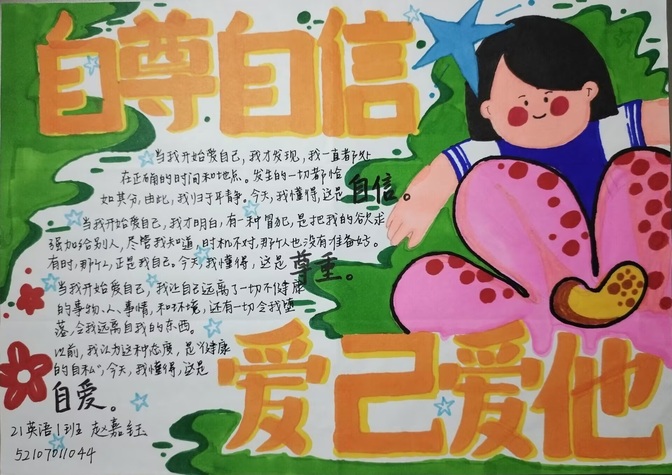 自尊自信
当我开始爱自己，我才发现，我一直都处
在正确的时间和地点。发生的一切都恰
如其分，由此，我归于平静。今天，我懂得，这是自信。
当我开始爱自己，我才明白，有一种冒犯，是把我的欲求
强加给别人，尽管我知道，时机不对，那个人也没有准备好。
有时，那个人，正是我自己。今天，我懂得，这是尊重。
当我开始爱自己，我让自己远离了一切不健康
的事物、人、事情，和环境，还有一切令我堕
落，令我远离自我的东西。
以前，我认为这种态度，是“健康
的自私”，今天，我懂得，这是
自爱。
爱己爱他
21英语1班 赵嘉钰
52107011044